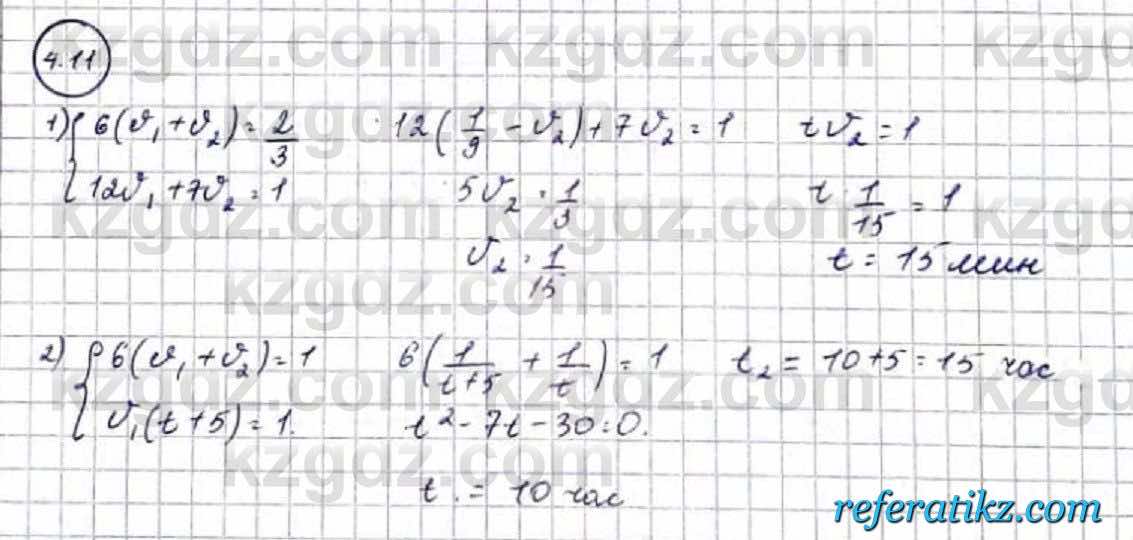 4.11
1) { 6(v₁ + v₂) = 2/3    12(1/9 − v₂) + 7v₂ = 1    tv₂ = 1
12v₁ + 7v₂ = 1    5v₂ = 1/3    t · 1/15 = 1
v₂ = 1/15    t = 15 мин
2) { 6(v₁ + v₂) = 1    6(1/(t+5) + 1/t) = 1    t₂ = 10 + 5 = 15 час
v₁(t + 5) = 1.    t² − 7t − 30 = 0.
t. = 10 час
kzgdz.com
referatikz.com